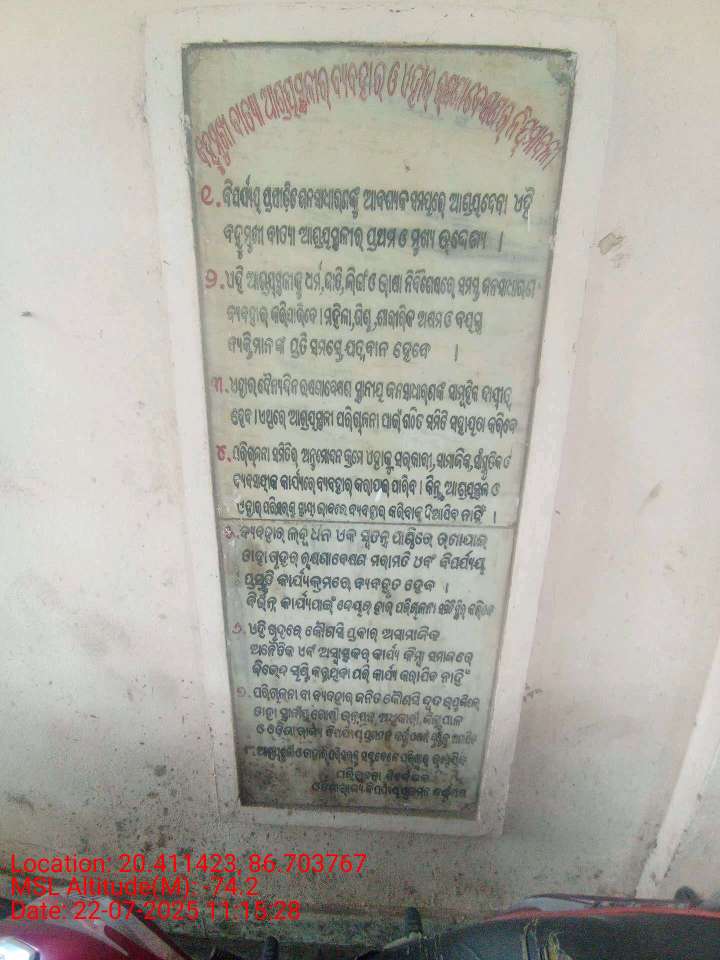 ବହୁମୁଖୀ ବାତ୍ୟା ଆଶ୍ରୟସ୍ଥଳୀର ବ୍ୟବହାର ଓ ଏହାର ରକ୍ଷଣାବେକ୍ଷଣର ନିୟମାବଳୀ
୧. ବିପର୍ଯ୍ୟୟ ପ୍ରପୀଡ଼ିତ ଜନସାଧାରଣଙ୍କୁ ଆବଶ୍ୟକ ସମୟରେ ଆଶ୍ରୟଦେବା ଏହି
ବହୁମୁଖୀ ବାତ୍ୟା ଆଶ୍ରୟସ୍ଥଳୀର ପ୍ରଥମ ଓ ମୁଖ୍ୟ ଉଦ୍ଦେଶ୍ୟ ।
୨. ଏହି ଆଶ୍ରୟସ୍ଥଳୀକୁ ଧର୍ମ, ଜାତି, ଲିଙ୍ଗ ଓ ଭାଷା ନିର୍ବିଶେଷରେ ସମସ୍ତ ଜନସାଧାରଣ
ବ୍ୟବହାର କରିପାରିବେ । ମହିଳା, ଶିଶୁ, ଶାରୀରିକ ଅକ୍ଷମ ଓ ବୟସ୍କ
ବ୍ୟକ୍ତିମାନଙ୍କ ପ୍ରତି ସମସ୍ତେ ଯତ୍ନବାନ ହେବେ ।
୩. ଏହାର ଦୈନ୍ୟଦିନ ରକ୍ଷଣାବେକ୍ଷଣ ସ୍ଥାନୀୟ ଜନସାଧାରଣଙ୍କ ସାମୂହିକ ଦାୟୀତ୍ୱ
ହେବ । ଏଥିରେ ଆଶ୍ରୟସ୍ଥଳୀ ପରିଚାଳନା ପାଇଁ ଗଠିତ ସମିତି ସହାୟତା କରିବେ
୪. ପରିଚାଳନା ସମିତିର ଅନୁମୋଦନ କ୍ରମେ ଏହାକୁ ସରକାରୀ, ସାମାଜିକ, ସାଂସ୍କୃତିକ ଓ
ବ୍ୟବସାୟୀକ କାର୍ଯ୍ୟରେ ବ୍ୟବହାର କରାଯାଇ ପାରିବ । କିନ୍ତୁ ଆଶ୍ରୟସ୍ଥଳ ଓ
ଏହାର ପରିସରକୁ ସ୍ଥାୟୀ ଭାବରେ ବ୍ୟବହାର କରିବାକୁ ଦିଆଯିବ ନାହିଁ ।
ବ୍ୟବହାର ଲବ୍ଧ ଧନ ଏକ ସ୍ୱତନ୍ତ୍ର ପାଣ୍ଠିରେ ରଖାଯାଇ
ତାହା ଗୃହର ରକ୍ଷଣାବେକ୍ଷଣ ମରାମତି ଏବଂ ବିପର୍ଯ୍ୟୟ
ପ୍ରସ୍ତୁତି କାର୍ଯ୍ୟକ୍ରମରେ ବ୍ୟବହୃତ ହେବ ।
ବିଭିନ୍ନ କାର୍ଯ୍ୟପାଇଁ ଦେୟର ହାର ପରିଚାଳନା କମିଟି ସ୍ଥିର କରିବେ
୬. ଏହି ଗୃହରେ କୌଣସି ପ୍ରକାର ଅସାମାଜିକ
ଅନୈତିକ ଏବଂ ଅସ୍ୱାସ୍ଥ୍ୟକର କାର୍ଯ୍ୟ କିମ୍ବା ସମାଜରେ
ବିଭେଦ ସୃଷ୍ଟି କରୁଥିବା ପରି କାର୍ଯ୍ୟ କରାଯିବ ନାହିଁ
୭. ପରିଚାଳନା ବା ବ୍ୟବହାର ଜନିତ କୌଣସି
ତାହା ସ୍ଥାନୀୟ ଗୋଷ୍ଠୀ ଉନ୍ନୟନ ଅଧିକାରୀ, ଜିଲ୍ଲାପାଳ
ଓ ଓଡିଶା ରାଜ୍ୟ ବିପର୍ଯ୍ୟୟ ପ୍ରଶମନ
ପରିଚାଳନା ନିର୍ଦ୍ଦେଶକ
ଓଡିଶା ରାଜ୍ୟ ବିପର୍ଯ୍ୟୟ ପ୍ରଶମନ
Location: 20.411423, 86.703767
MSL Altitude(M): -74.2
Date: 22-07-2025 11:15:28